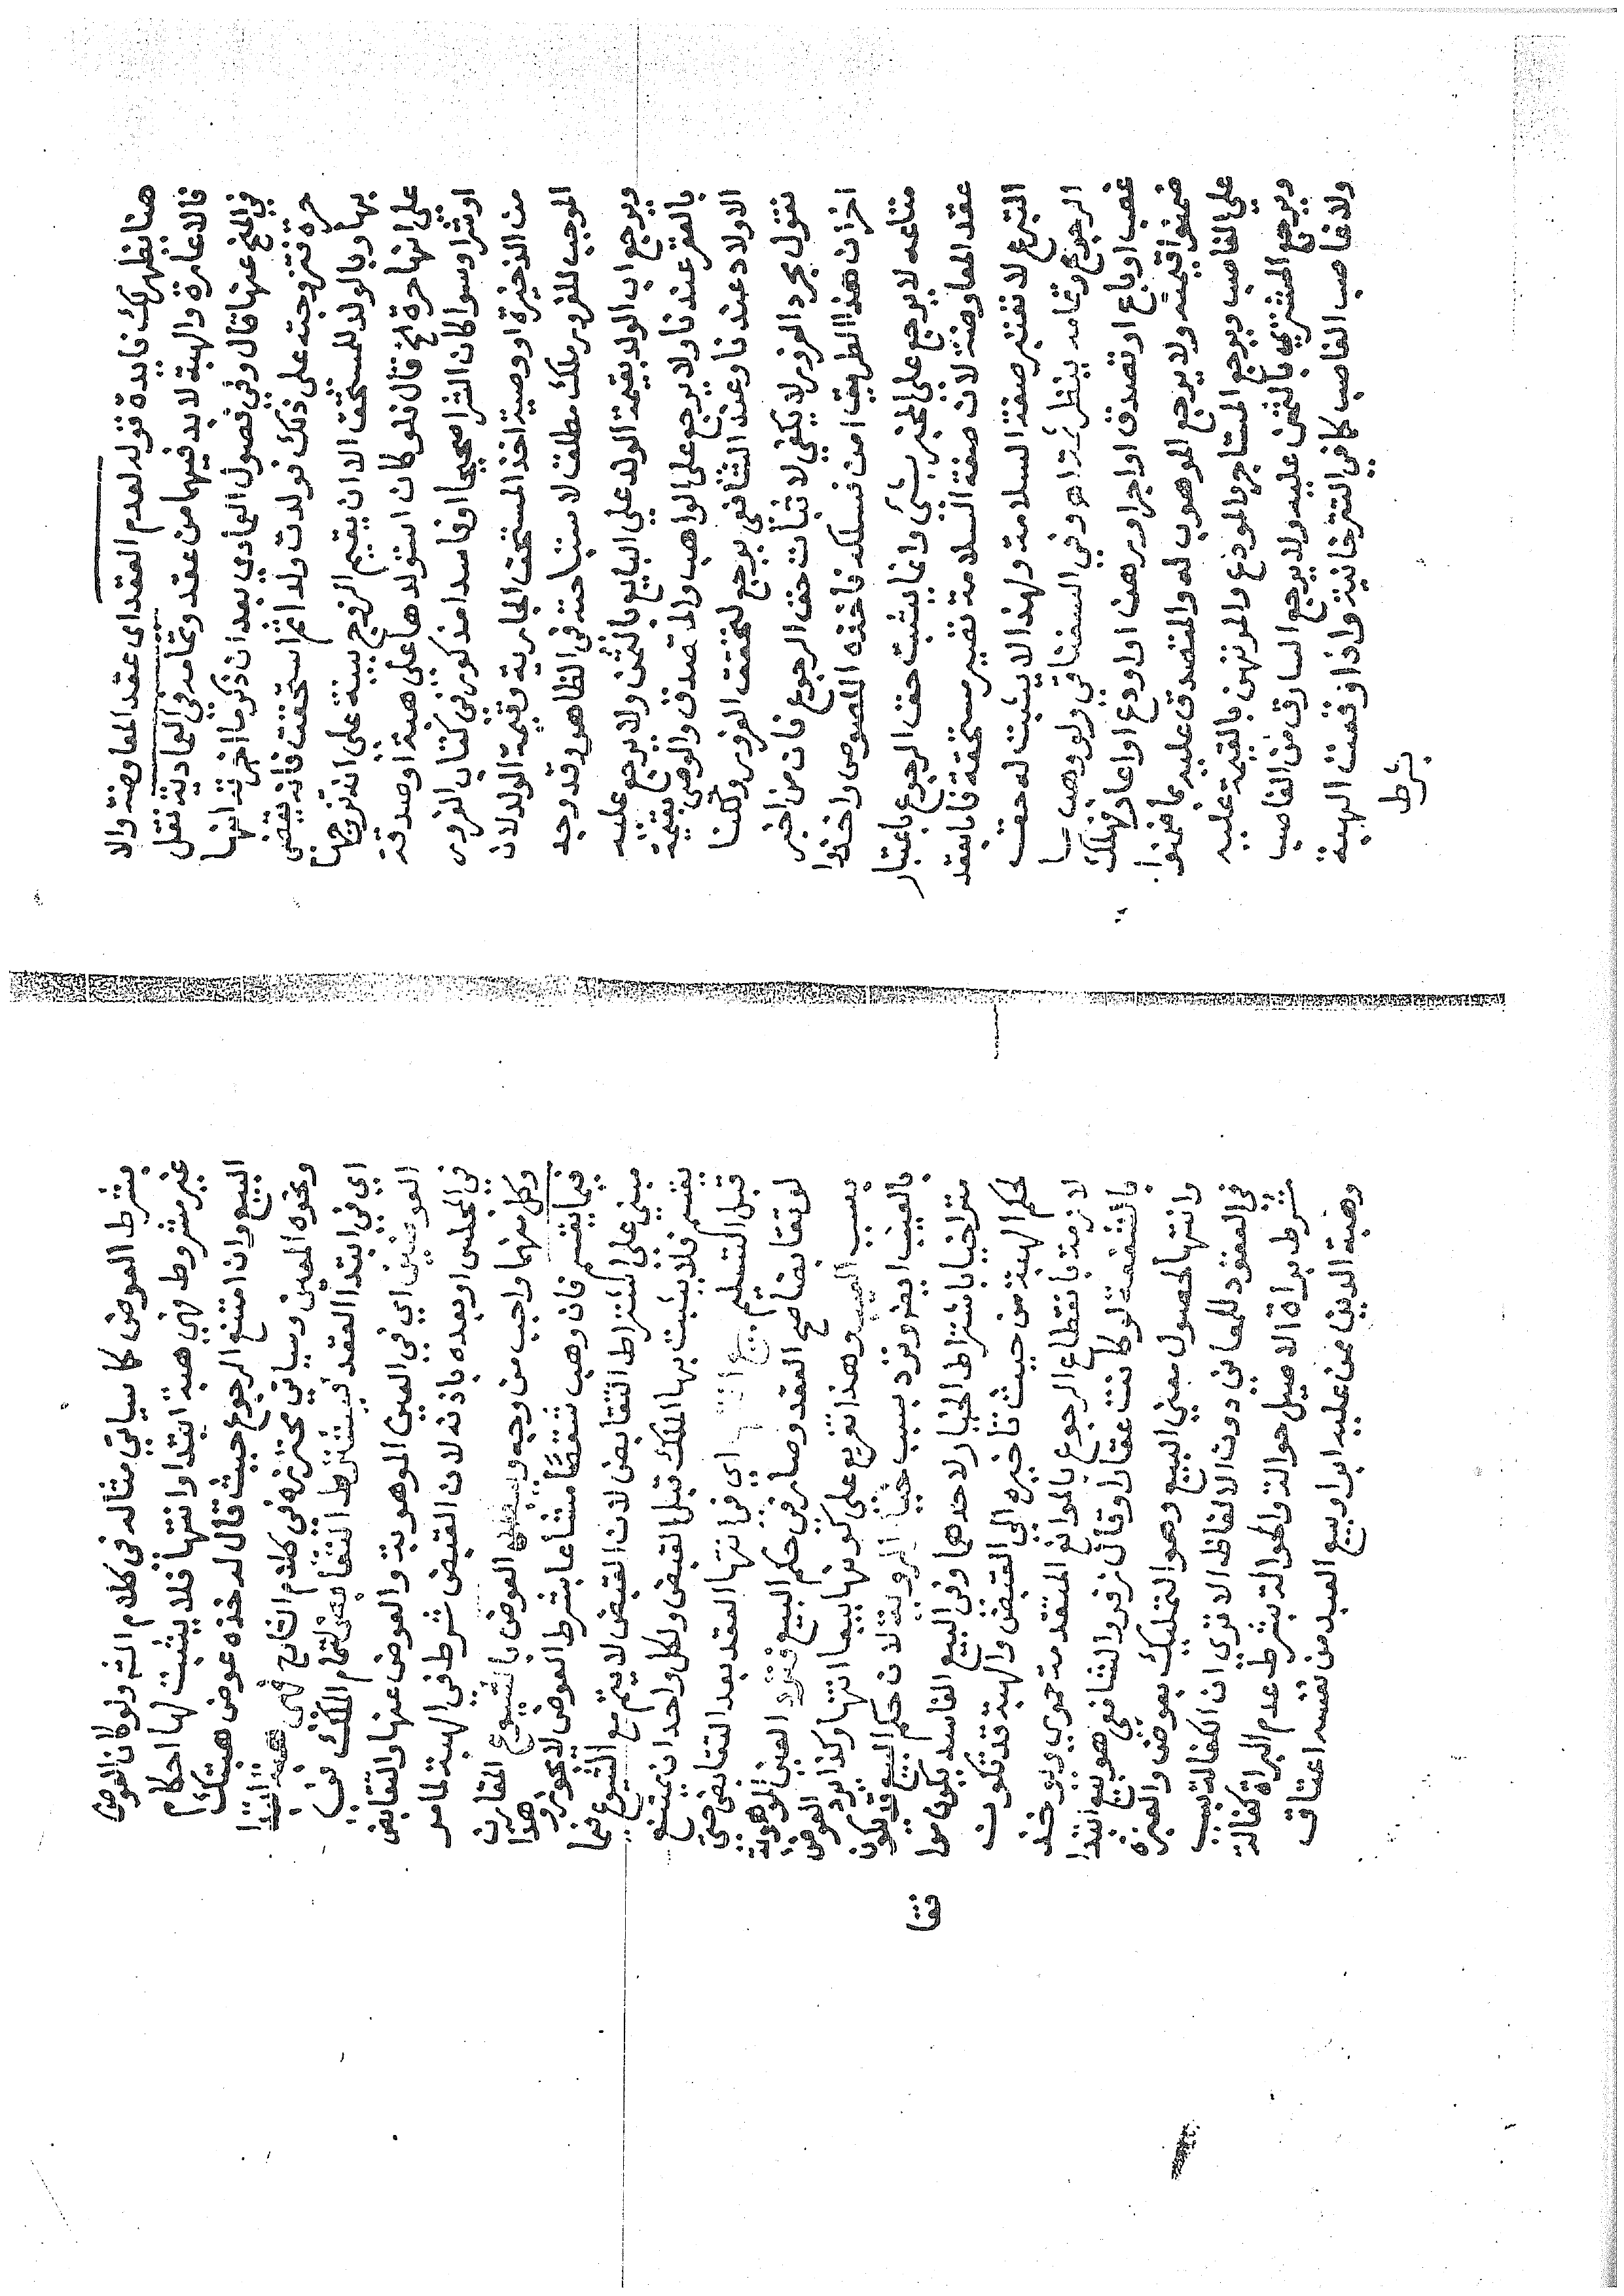 هنا يظهر لك فايدة قوله لعدم العقد اى عقد المعاوضة والا
فالاعارة والهبة لا بد فيهما من عقد وتمامه في العمادية نقل
في المنح عنها قال وفي فصول العمادي بعد ان ذكر ما اخرته انها
حرة فتزوجته على ذلك فولدت ولدا ثم استحقت فانه يقضى
بها وبالولد للمستحق الا ان يقيم الزوج بينة على انه تزوجها
على انها حرة الخ قال فلو كان استولدها على هبة او صدقة
او شرا وسوا كان الشرا صحيحا او فاسدا مذكور في كتاب الغرور
من الذخيرة او وصية اخذ المستحق الجارية وقيمة الولد لان
الموجب للغرور ملك مطلق لاستباحته في الظاهر وقد وجد
ويرجع اب الولد بقيمة الولد على البايع بالثمن ولا يرجع عليه
بالعقر عندنا ولا يرجع على الواهب والمتصدق والموصى بقيمة
الاولاد عندنا وعند الشافعي يرجع لتحقق الغرور ولكنا
نقول مجرد الغرور لا يكفي لاثبات حق الرجوع فان من اخبر
اخر ان هذا الطريق امن فسلكه فاخذه اللصوص واخذوا
متاعه لا يرجع على المخبر بشئ وانما يثبت حق الرجوع باعتبار
عقد المعاوضة لان صفة السلامة تصير مستحقة فاما بعقد
التبرع لا تعتبر صفة السلامة ولهذا لا يثبت له حق
الرجوع وتمامه ينظر ثمة وفي السغناقي ولو وهب
غصب او باع او تصدق او اجر او رهن او اودع او اعار فهلك
ضمنوا قيمته ولا يرجع الموهوب له والمتصدق عليه بما ضمنوا
على الغاصب ويرجع المستاجر والمودع والمرتهن بالقيمة عليه
ويرجع المشتري بالثمن عليه ولا يرجع السارق من الغاصب
ولا غاصب الغاصب كما في التترخانية واذا وقعت الهبة
بشرط
بشرط العوض كما سياتي مثاله في كلام الش ولو كان العوض
غير مشروط فهي هبة ابتدا وانتها فلا يثبت لها احكام
البيع وان امتنع الرجوع حيث قال له خذه عوض هبتك
ونحوه المعين وسياتي محترزه في كلام الشارح فهي هبة ابتدا
اي في ابتدا العقد فيشترط التقابض لتمام الملك في
العوضين اي في العين الموهوبة والعوض عنها والتقابض
في المجلس او بعده باذنه لان القبض شرط في الهبة لما مر
وكل منهما واجب من وجه ويبطل العوض بالشيوع المقارن
فيما يقسم فان وهب شقصا مشاعا بشرط العوض لا يجوز وهذا
مبني على اشتراط التقابض لان القبض لا يتم مع الشيوع فيما
يقسم فلا يثبت بها الملك قبل القبض ولكل واحد ان يمتنع
قبل التسليم بيع انتها اي في انتها العقد بعد التقابض حتى
لو تقابضا صح العقد وصار في حكم البيع فترد العين الموهوبة
بعيب العيب وهذا تفريع على كونها بيعا انتها وكذا يرد العوض
بالعيب ايضا وترد بسبب خيار الروية لان حكم البيع قد يكون
متراخيا باشتراط الخيار لاحدهما وفي البيع الفاسد يكون موا
لحكم الهبة من حيث تاخيره الى القبض والهبة قد تكون
لازمة بانقطاع الرجوع بالموانع المتقدمة حموي ويوخذ
بالشفعة لو كانت عقارا وقال زفر والشافعي هو بيع ابتدا
وانتها لحصول معنى البيع وهو التمليك بعوض والعبرة
في العقود للمعاني دون الالفاظ الا ترى ان الكفالة
بشرط براة الاصيل حوالة والحوالة بشرط عدم البراة كفالة
وهبة الدين ممن عليه ابرا وبيع العبد من نفسه اعتاق
فقا